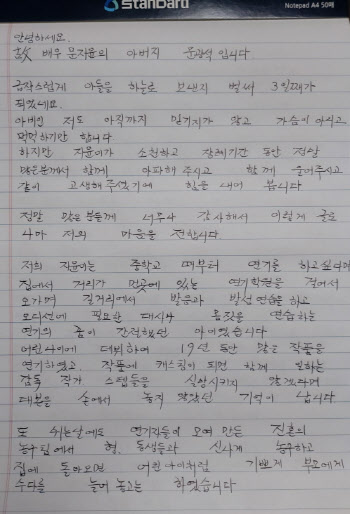 Standard
Notepad A4 50매
안녕하세요.
故 배우 문지윤의 아버지 문광석 입니다
급작스럽게 아들을 하늘로 보낸지 벌써 3일째가
되었네요.
아버인 저도 아직까지 믿기지가 않고 가슴이 아시고
먹먹하기만 합니다
하지만 지윤이가 소천하고 장례기간 동안 정말
많은분께서 함께 아파해 주시고 함께 울어주시고
같이 고생해주셨기에 힘을 내어 봅니다
정말 많은 분들께 너무나 감사해서 이렇게 글로
나마 저의 마음을 전합니다
저희 지윤이는 중학교 때부터 연기를 하고싶다며
집에서 거리가 먼곳에 있는 연기학원을 걸어서
오가며 길거리에서 발음과 발성연습을 하고
오디션에 필요한 대사나 몸짓을 연습하는
연기의 꿈이 간절했던 아이였습니다
어린나이에 데뷔하여 19년 동안 많은 작품을
연기하였고, 작품에 캐스팅이 되면 함께 일하는
감독 작가 스텝들을 실망시키지 않겠다며
대본을 손에서 놓지 않았던 기억이 납니다
또 쉬는날에도 연기자들이 모여 만든 진혼의
농구팀에서 형, 동생들과 신나게 농구하고
집에 돌아오면 어린아이처럼 기쁘게 부모에게
수다를 늘어 놓고는 하였습니다